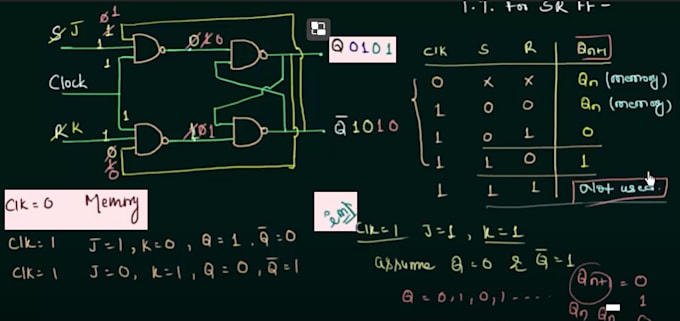 T.T. For SR FF -
S J
0 1
1
1
0 1 0
Q 0101
Clock
1
R K
1
1 0 1
Q̄ 1010
0
1
0
Clk S R Qn+1
0 x x Qn (memory)
1 0 0 Qn (memory)
1 0 1 0
1 1 0 1
1 1 1 Not used
Clk = 0 Memory
Clk = 1 J = 1, K = 0, Q = 1, Q̄ = 0
Clk = 1 J = 0, K = 1, Q = 0, Q̄ = 1
Clk = 1 J = 1, K = 1
assume Q = 0 & Q̄ = 1
Q = 0, 1, 0, 1 ----
Qn+1 = 0
1